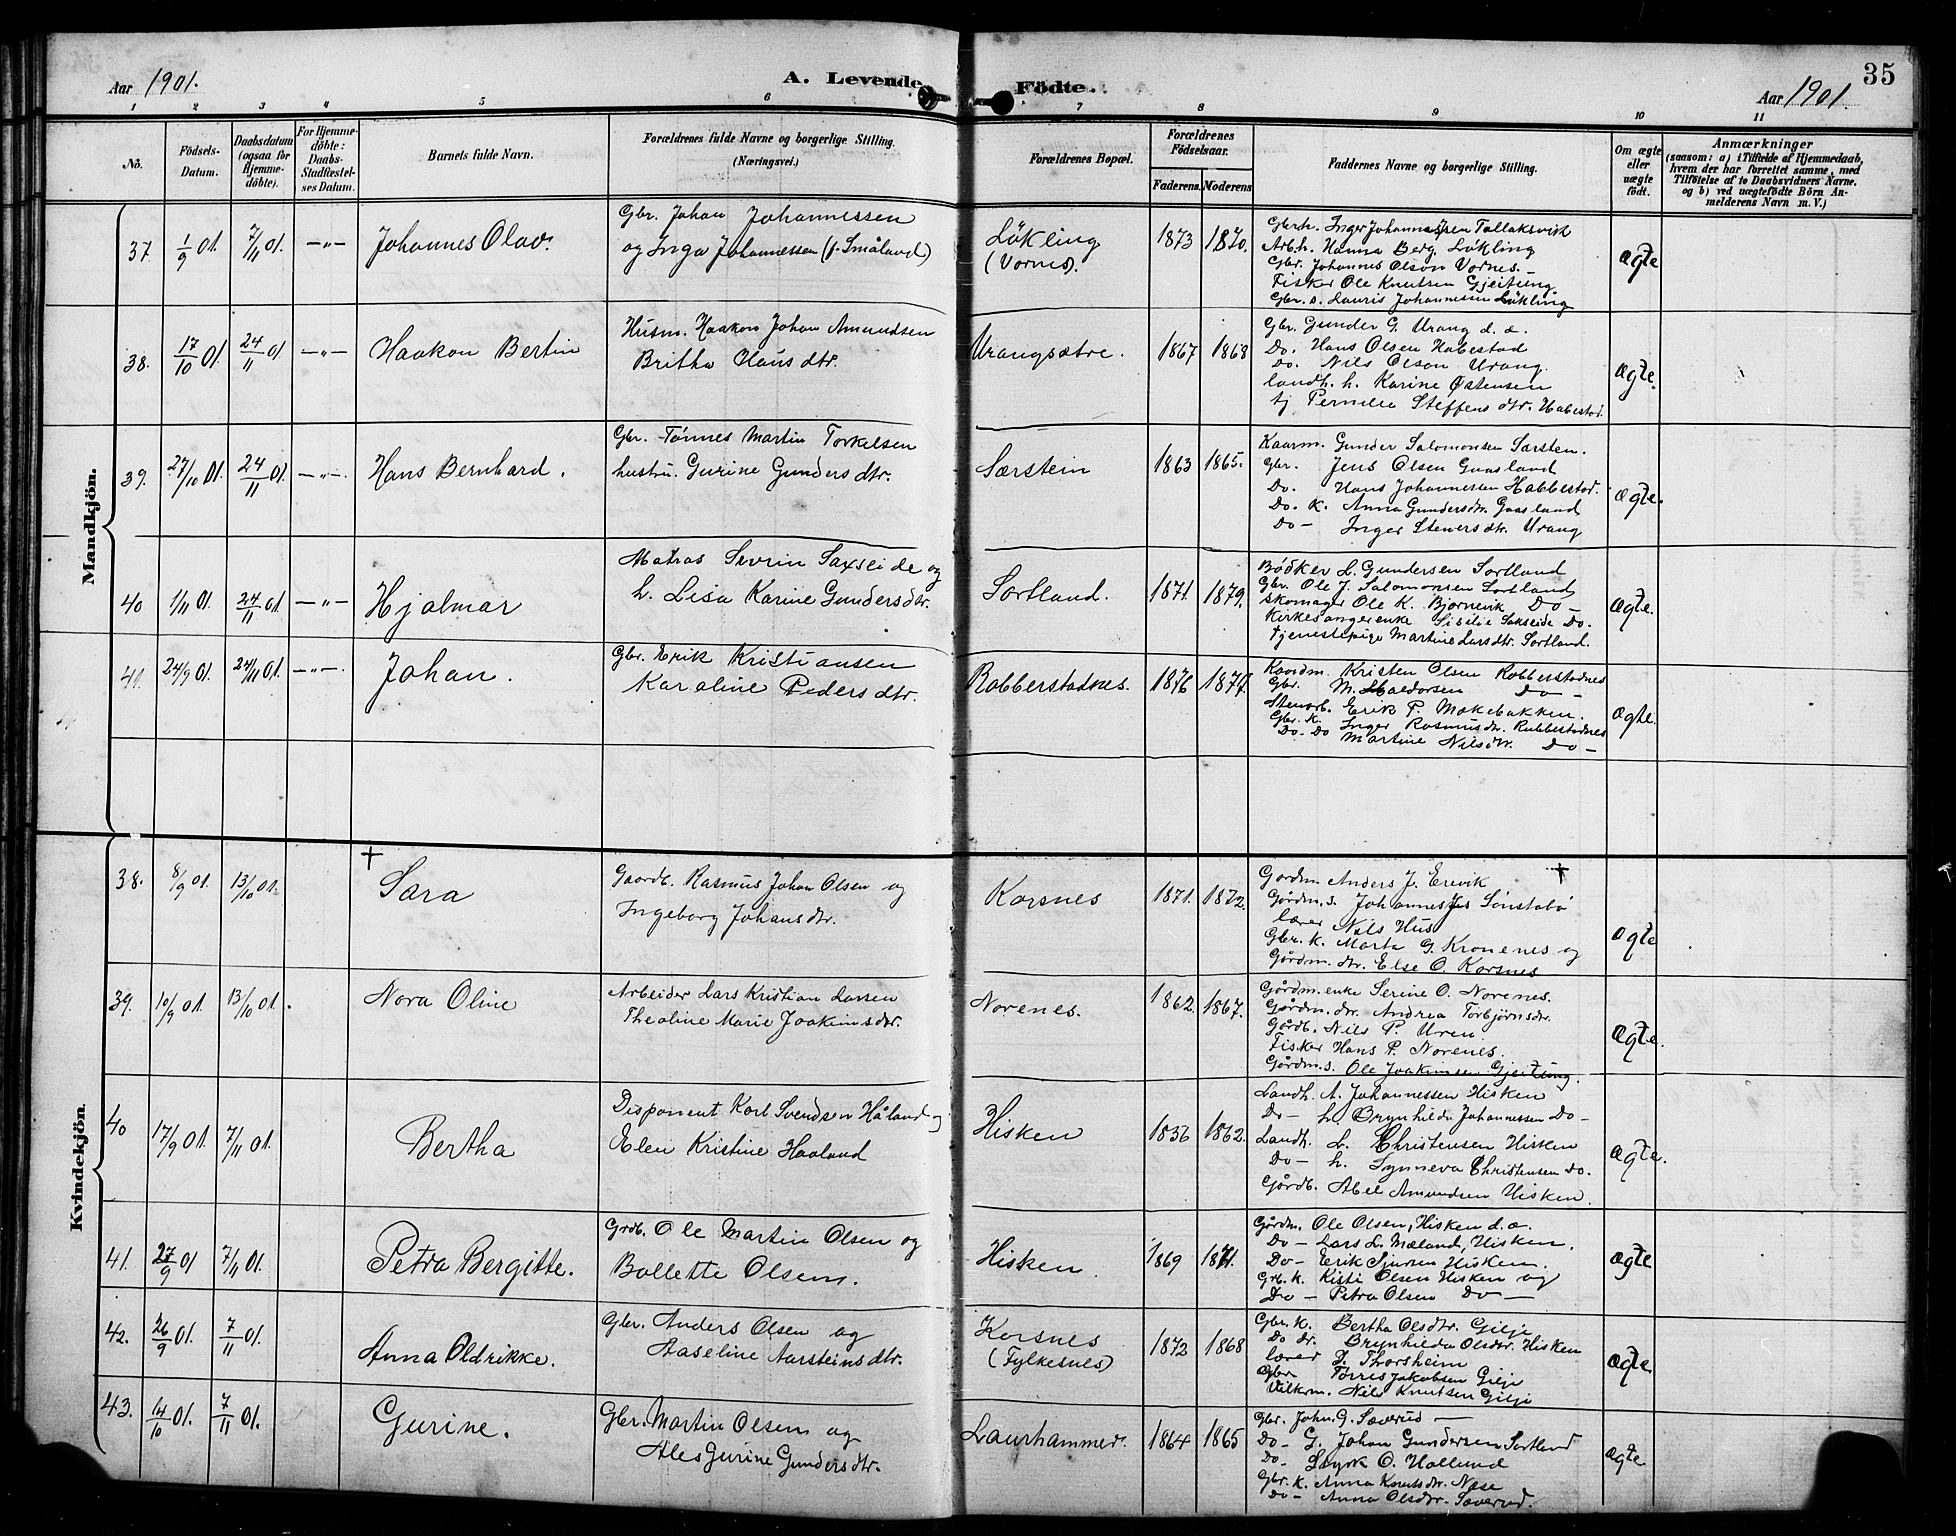 Aar 1901.
A. Levende Födte.
Aar 1901.
35
1 2 3 4 5 6 7 8 9 10 11
No.
Födsels-Datum.
Daabsdatum (ogsaa for Hjemmedöbte).
For Hjemmedöbte: Daabs-Stadfæstelses Datum.
Barnets fulde Navn.
Forældrenes fulde Navne og borgerlige Stilling. (Næringsvei.)
Forældrenes Bopæl.
Forældrenes Födselsaar.
Faderens.
Moderens
Faddernes Navne og borgerlige Stilling.
Om ægte eller uægte födt.
Anmærkninger
(saasom: a) i Tilfælde af Hjemmedaab, hvem der har forrettet samme, med Tilföielse af to Daabsvidners Navne. og b) ved uægtefödte Börn Anmelderens Navn m. V.)
Mandkjön.
37 1/9 01. 7/11 01. —"— Johannes Olav.
Gbr. Johan Johannessen
og Inga Johannessen (f. Småland)
Løkling
(Vornes).
1873 1870.
Gbrh. Inger Johannessen Tollaksvik
Arb.h. Hanna Berg, Løkling
Gbr. Johannes Olson Vornes. —
Fisker Ole Knutsen Gjeitung
Gbr. s. Lauris Johannessen Løkling
ægte
38. 17/10 01. 24/11 01. —"— Haakon Bertin
Husm. Haakon Johan Amundsen
Britha Olausdtr.
Urangsætre.
1867 1868
Gbr. Gunder G. Urang d. a.
Do. Hans Olsen Habestad
Do. Nils Olson Urang.
landh. h. Karine Østensen
tj Pernille Steffensdtr. Habestad.
ægte.
39. 27/10 01. 24/11 01. —"— Hans Bernhard.
Gbr. Tønnes Martin Torkelsen
hustru. Gurine Gundersdtr.
Særstein
1863 1865.
Kaarm. Gunder Salomonsen Særsten.
Gbr. Jens Olsen Gaasland
Do. Hans Johannessen Habbestad.
Do. K. Anna Gundersdtr. Gaasland
Do — Inger Stenersdtr. Urang
ægte.
40 1/11 01. 24/11 01. —"— Hjalmar
Matros Sevrin Saxseide og
h. Lisa Karine Gundersdtr.
Sortland.
1871. 1879.
Bødker L. Gundersen Sortland
Gbr. Ole J. Salomonsen Sortland
skomager Ole K. Bjørnevik Do —
Kirkesangerenke Sisilie Sakseide Do.
tjenestepige Martine Larsdtr. Sortland.
ægte.
41. 24/9 01. 24/11 01. —"— Johan.
Gbr. Erik Kristiansen
Karoline Pedersdtr.
Robberstadnes.
1876 1877.
Kaardm. Kristen Olsen Robberstadnes
Gbr. M. Haldorsen Do —
Stenarb. Erik P. Møkebakken.
Gbr. K. Inger Rasmusdtr. Rubbestadnes
Do. Do Martine Nilsdtr. Do —
ægte.
Kvindekjön.
38. 8/9 01. 13/10 01. † Sara
Gaardb. Rasmus Johan Olsen og
Ingeborg Johansdtr.
Korsnes
1871. 1872.
Gordm Anders J. Erevik †
Gårdm. s. Johannes Js Sønstabø
lærer Nils Hus
Gbr. K. Marta G. Kronenes og
Gårdm. dtr. Else O. Korsnes
ægte
39. 10/9 01. 13/10 01. Nora Oline
Arbeider Lars Kristian Larsen
Theoline Marie Joakimsdtr.
Norenes.
1862. 1867.
Gårdm. enke Serine O. Norenes.
Gårdm. dtr. Andrea Torbjørnsdtr.
Gårdb. Nils P. Uren
Fisker Hans P. Norenes.
Gårdm. s. Ole Joakimsen Gjeitung.
ægte.
40 17/9 01. 7/11 01. Bertha
Disponent Karl Svendsen Håland og
Elen Kristine Haaland
Hisken
1856 1862.
Landh. A. Johannessen Hisken
Do — h. Brynhilda Johannessen Do —
Landh. L. Christensen Hisken
Do — h. Synneva Christensen Do.
Gårdb. Abel Amundsen Hisken.
ægte.
41. 27/9 01 7/11 01. Petra Bergitte.
Grdb. Ole Martin Olsen og
Bollette Olsen.
Hisken
1869 1871.
Gårdm. Ole Olsen, Hisken d. a.
Do — Lars L. Mæland, Hisken.
Do — Erik Sjursen Hisken.
Grb. K. Kisti Olsen Hisken og
Do — Petra Olsen Do —
ægte
42. 26/9 01. 7/11 01. Anna Oldrikke.
Gbr. Anders Olsen og
Aaseline Aarsteinsdtr.
Korsnes
(Fylkesnes)
1872 1868
Gbr. K. Bertha Olsdtr. Gilje
Do dr. Brynhilda Olsdtr. Hisken
lærer D. Thorsheim
Gbr Torres Jakobsen Gilje
Vilkm. Nils Knutsen Gilje
ægte.
43. 14/10 01. 7/11 01. Gurine.
Gbr. Martin Olsen og
Ales Gurine Gundersdtr.
Laurhammer.
1864 1865
Gbr. John. G. Sæverud —
Do — G. Johan Gundersen Sortland
Do. Styrk O. Hallund
Gbr. K. Anna Knutsdtr. Nese
Do — Anna Olsdtr. Sæverud.
ægte.